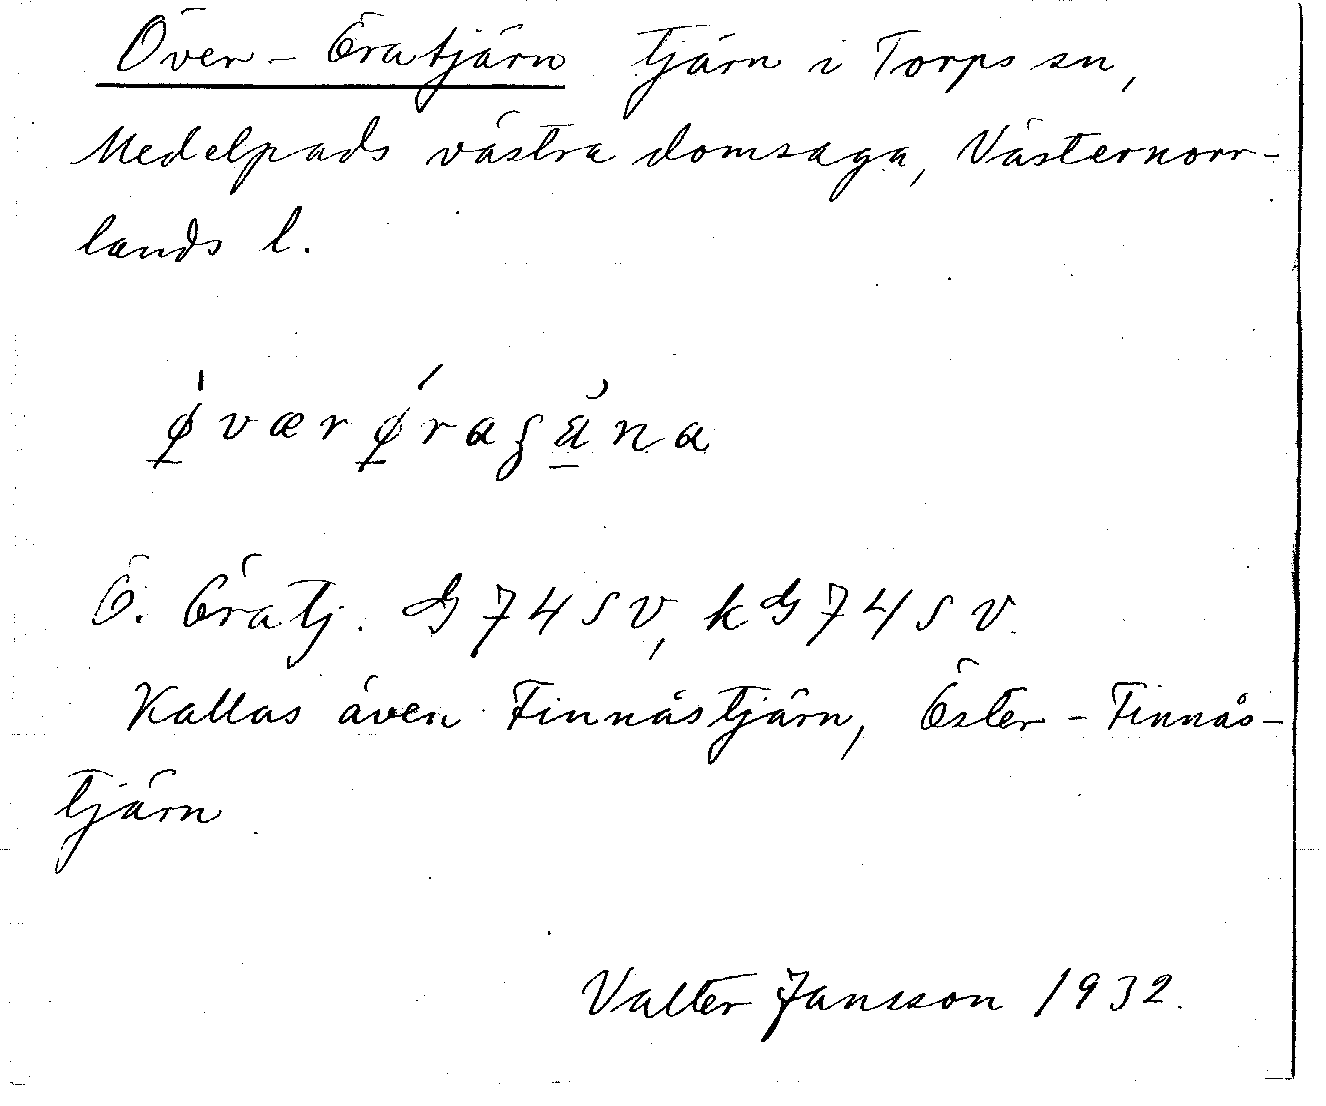 Över-Öratjärn tjärn i Torps sn,
Medelpads västra domsaga, Västernorr-
lands l.
ǿ̲værǿ̲raʂä̲̀na
Ö. Öratj. G 74 SV, kG 74 SV.
Kallas även Finnåstjärn, Öster-Finnås-
tjärn
Valter Jansson 1932.